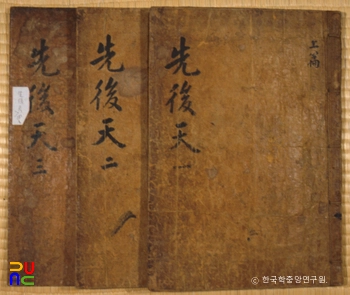 上篇
先後天 一
先後天 二
先後天 三
© 한국학중앙연구원